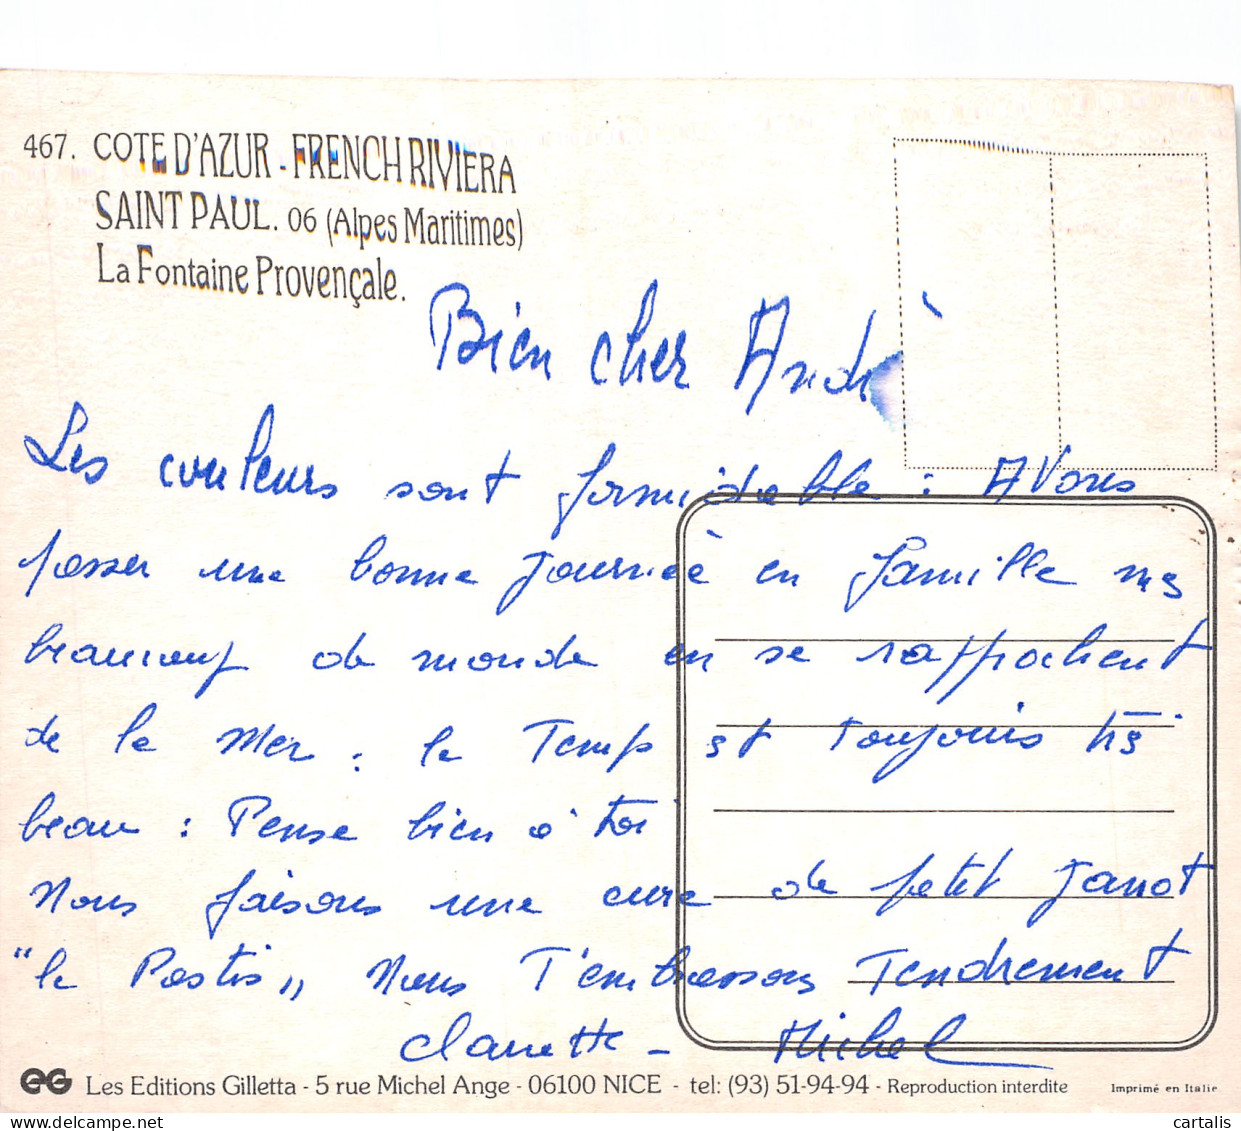 467. COTE D'AZUR - FRENCH RIVIERA
SAINT PAUL. 06 (Alpes Maritimes)
La Fontaine Provençale.
Bien cher André
Les couleurs sont formidable : Avons
passer une bonne journeè en famille
beaucoup de monde en se rapprochent
de la Mer : le Temps est Toujours très
beau : Pense bien à toi
Nous faisons une cure de petit Janot
"le Pastis„ Nous T'embrassons Tendrement
Michel
EG Les Editions Gilletta - 5 rue Michel Ange - 06100 NICE - tel: (93) 51-94-94 - Reproduction interdite
Imprimé en Italie
cartalis